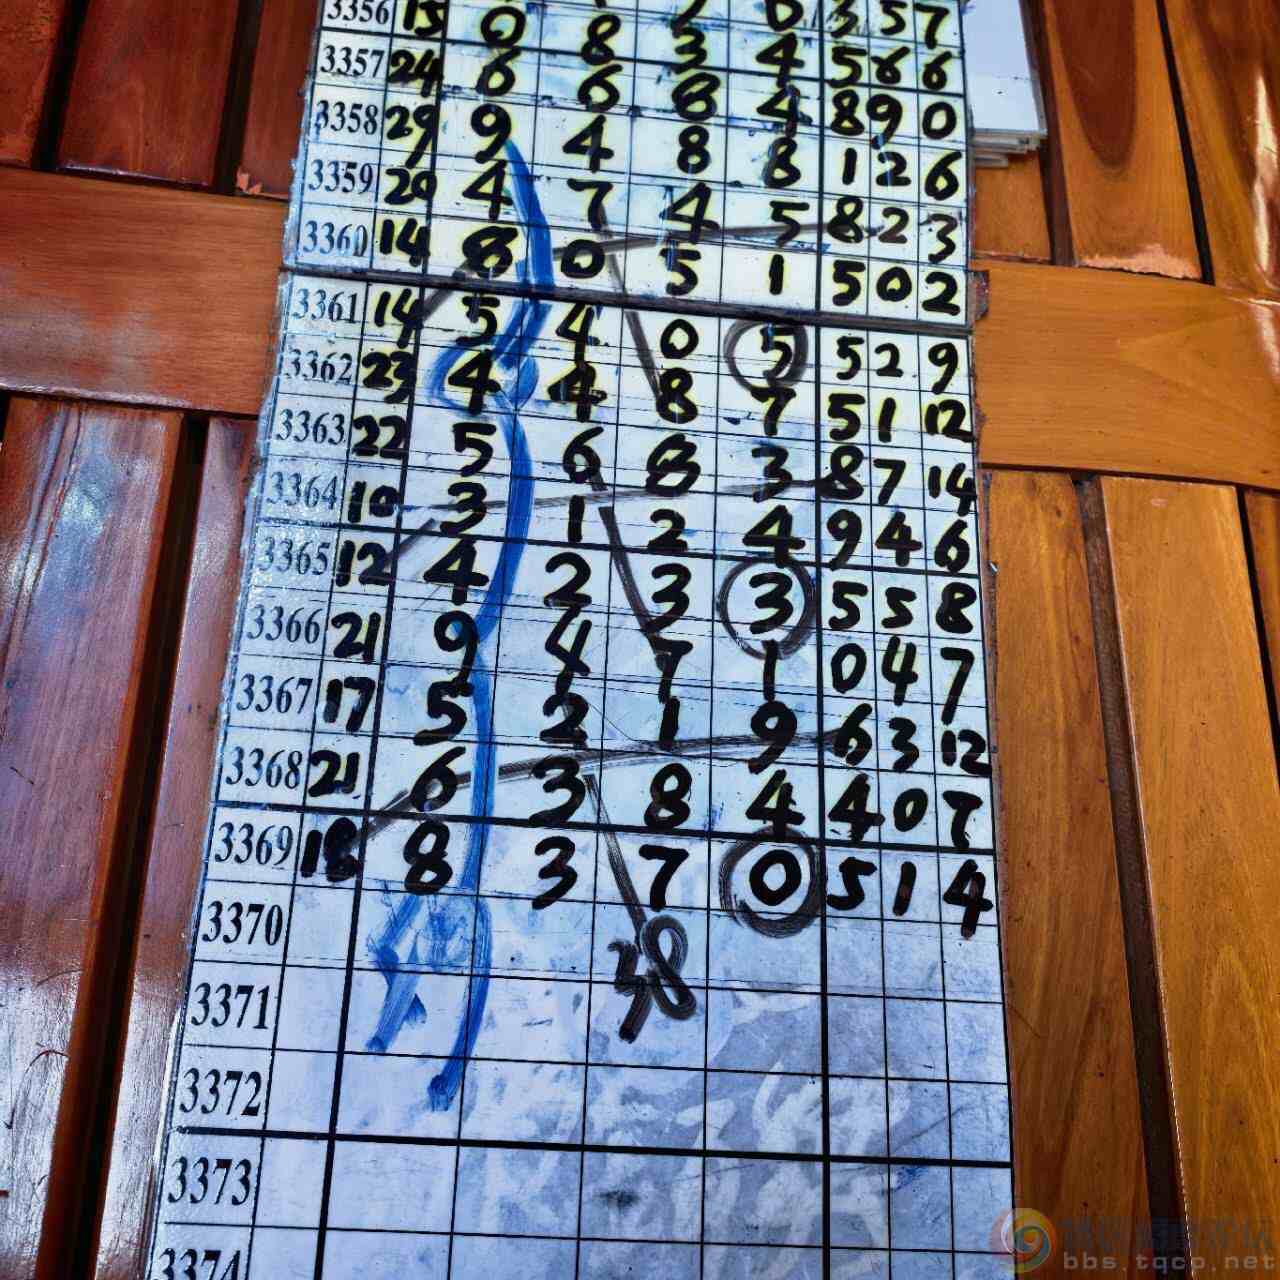 3356 15 0 8 3 4 3 5 7
3357 24 6 6 8 4 5 6 6
3358 29 9 4 8 8 8 9 0
3359 20 4 7 4 5 1 2 6
3360 14 8 0 5 1 8 2 3
5 0 2
3361 14 5 4 0 5
3362 23 4 4 8 7 5 2 9
3363 22 5 6 8 3 5 1 12
3364 10 3 1 2 4 8 7 14
3365 12 4 2 3 3 9 4 6
3366 21 9 4 7 1 5 5 8
3367 17 5 2 1 9 0 4 7
3368 21 6 3 8 4 6 3 12
3369 18 8 3 7 0 4 0 7
5 1 4
3370
38
3371
3372
3373
3374
bbs.tqco.net